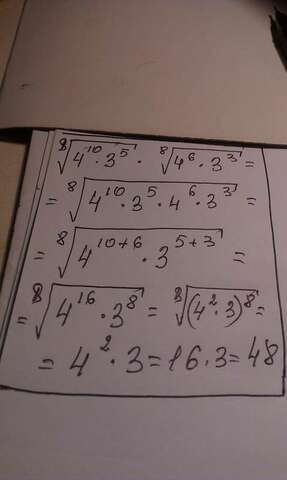 ⁸√(4¹⁰·3⁵) · ⁸√(4⁶·3³) =
= ⁸√(4¹⁰·3⁵·4⁶·3³) =
= ⁸√(4¹⁰⁺⁶·3⁵⁺³) =
= ⁸√(4¹⁶·3⁸) = ⁸√((4²·3)⁸) =
= 4²·3 = 16·3 = 48